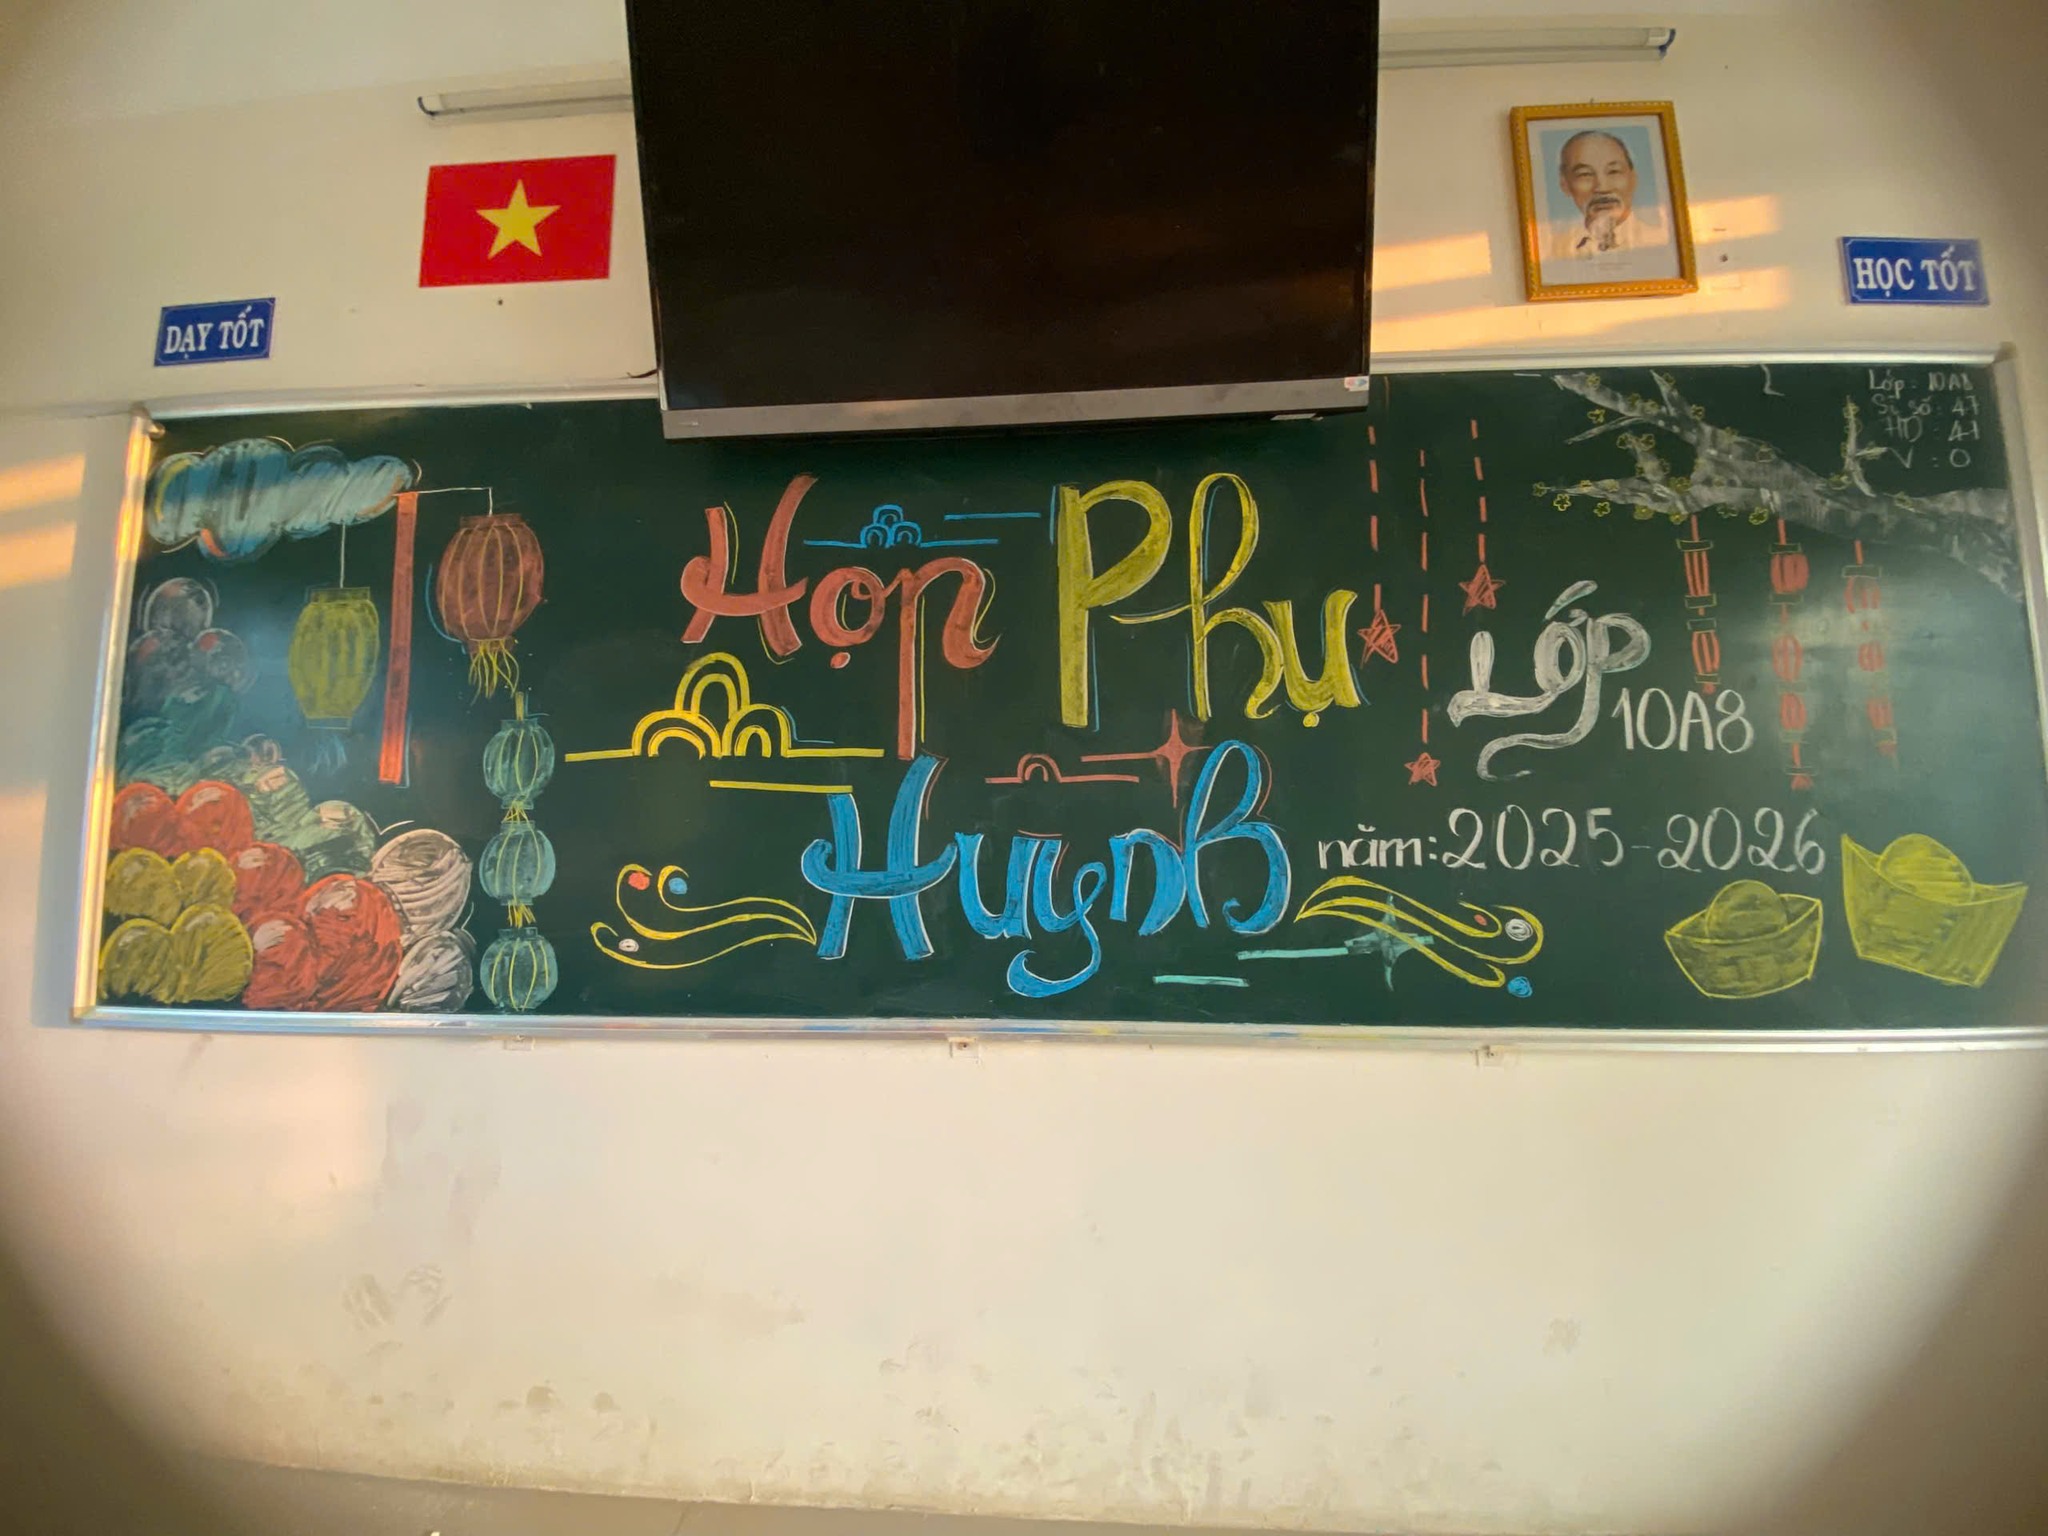 DẠY TỐT
HỌC TỐT
Lớp: 10A8
Sỹ số: 47
HD: 41
V: 0
Họp Phụ
Huynh
Lớp
10A8
năm: 2025-2026